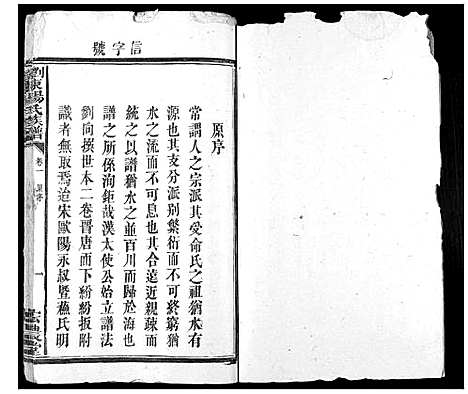 信字號
原序
常謂人之宗派其受命氏之祖猶水有
源也其支分派別繁衍而不可終窮猶
水之流而不可息也其合遠近親疎而
統之以譜猶水之並百川而歸於海也
譜之所係洵鉅哉漢太使公始立譜法
劉向撰世本二卷晉唐而下紛紛扳附
識者無取焉迨宋歐陽永叔暨蘓氏明
瀏東楊氏族譜
卷一
原序
一